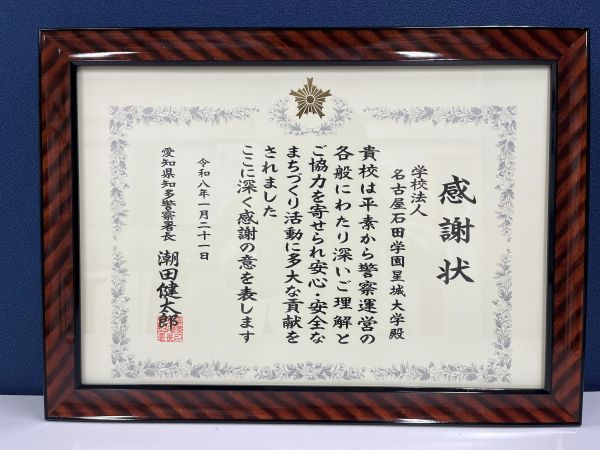 感謝状
学校法人
名古屋石田学園星城大学殿
貴校は平素から警察運営の
各般にわたり深いご理解と
ご協力を寄せられ安心・安全な
まちづくり活動に多大な貢献を
されました
ここに深く感謝の意を表します
令和八年一月二十一日
愛知県知多警察署長 潮田健太郎